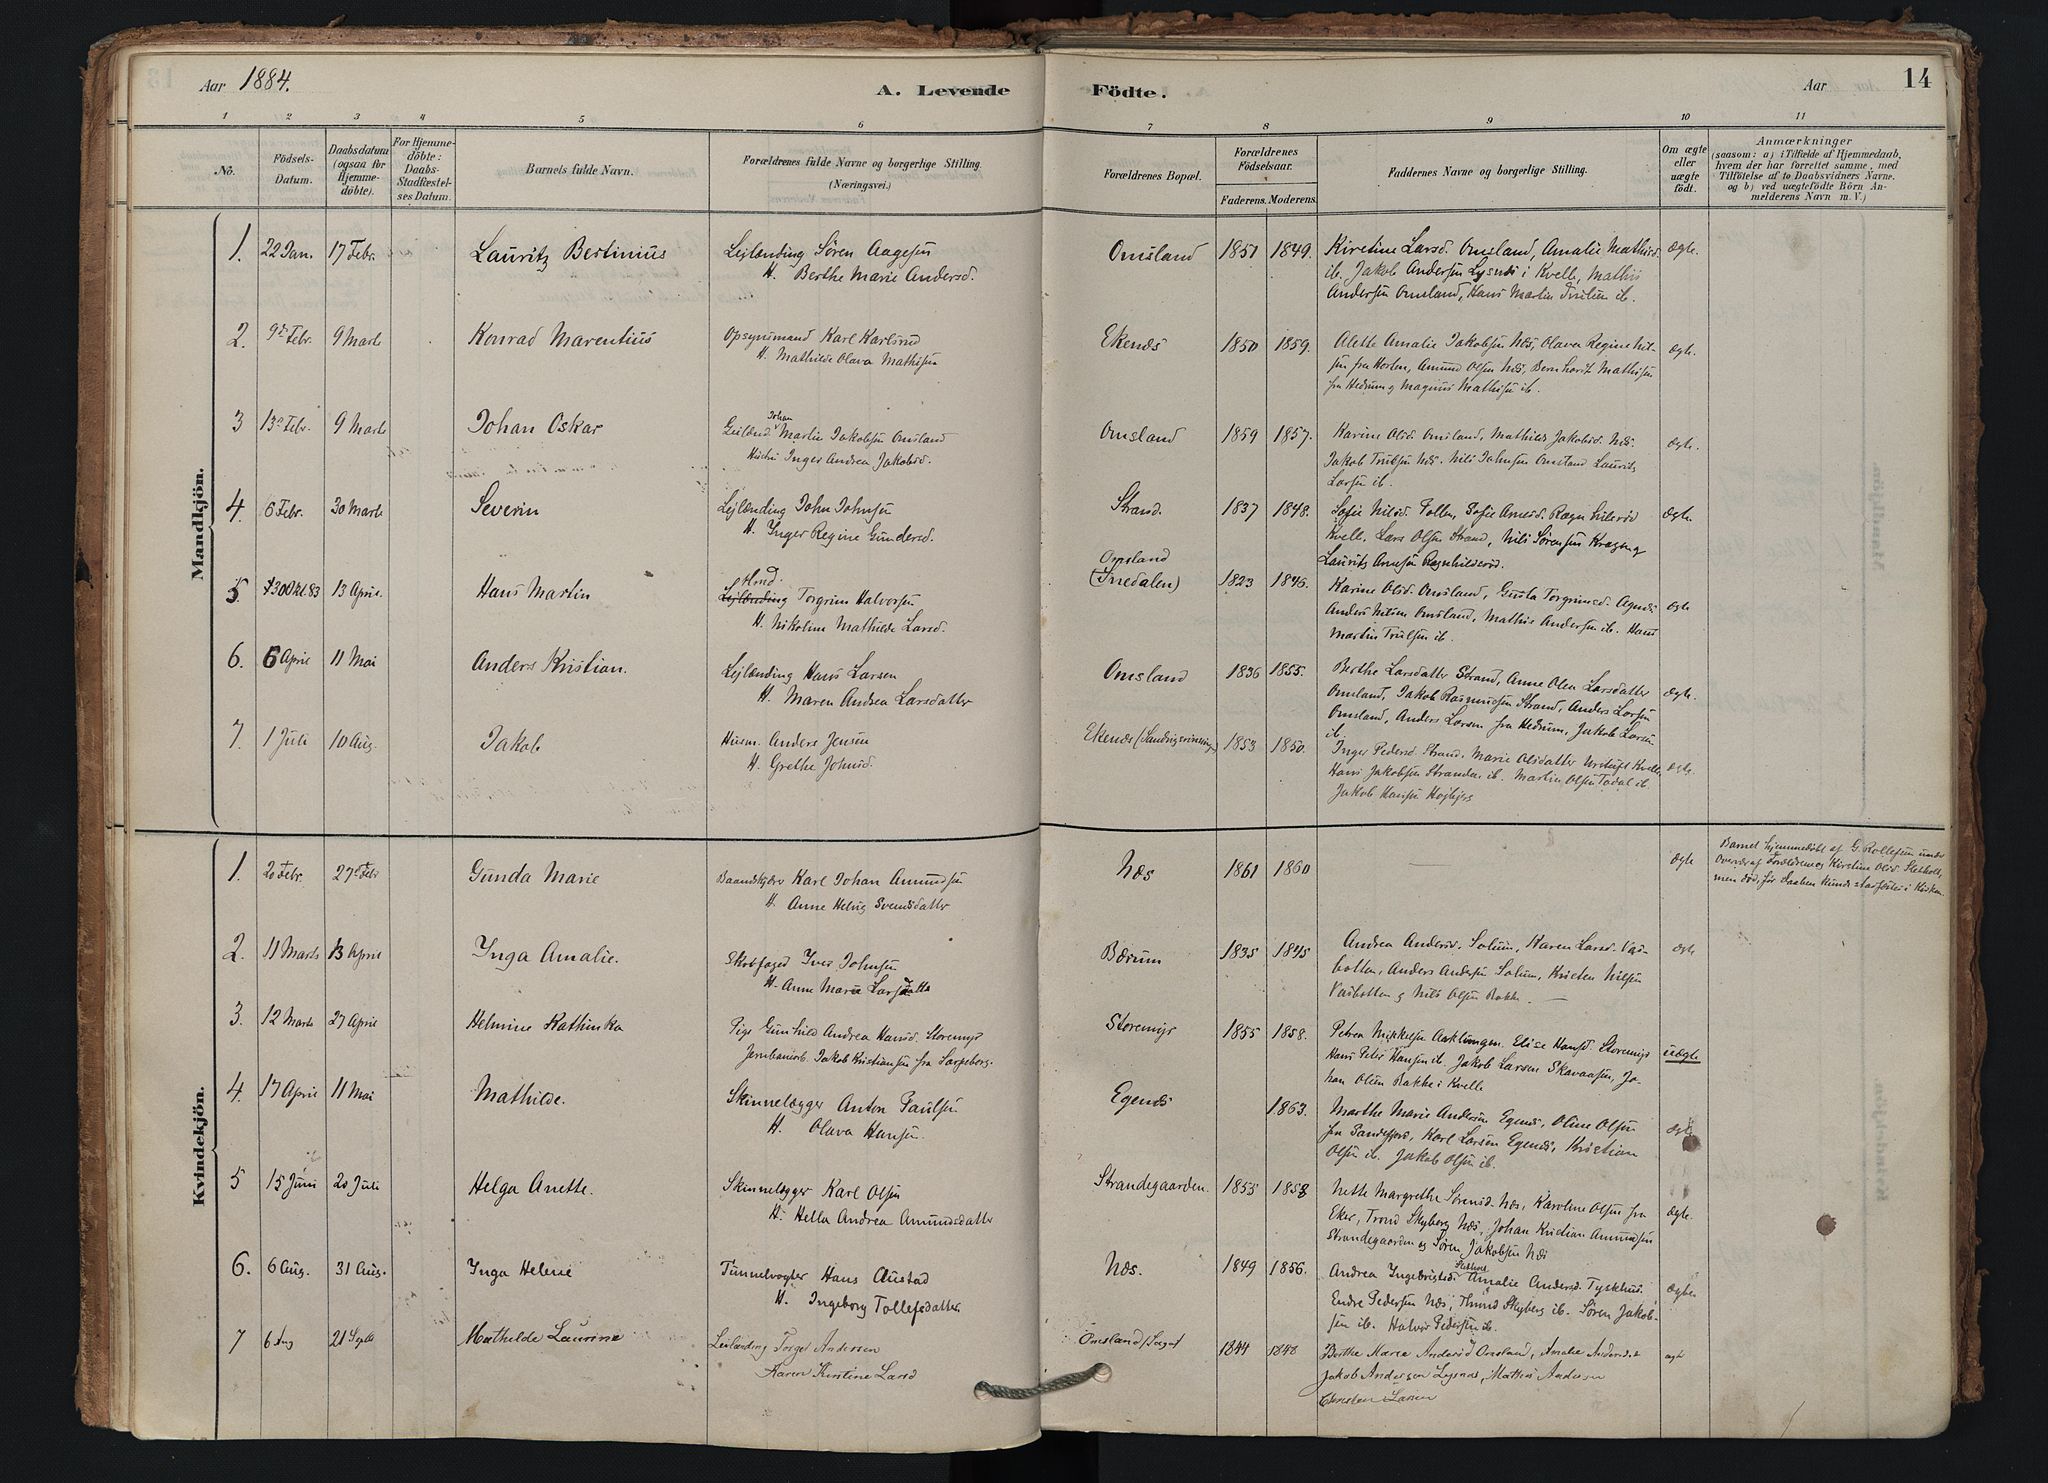 Aar 1884.
A. Levende
Födte.
Aar
14
1 2 3 4 5 6 7 8 9 10 11
No.
Födsels-
Datum.
Daabsdatum
(ogsaa for
Hjemme-
döbte).
For Hjemme-
döbte:
Daabs-
Stadfæstel-
ses Datum.
Barnets fulde Navn.
Forældrenes fulde Navne og borgerlige Stilling.
(Næringsvei.)
Forældrenes Bopæl.
Forældrenes
Födselsaar.
Faderens. Moderens.
Faddernes Navne og borgerlige Stilling.
Om ægte
eller
uægte
födt.
Anmærkninger
(saasom: a) i Tilfælde af Hjemmedaab,
hvem der har forrettet samme, med
Tilföielse af to Daabsvidners Navne.
og b) ved uægtefödte Börn An-
melderens Navn m. V.)
Mandkjön.
1. 22 Jan. 17 Febr. Lauritz Bertinius Lejlænding Sören Aagesen Omsland 1851 1849. Kirstine Larsd. Omsland, Amalie Mathisd. ægte.
H. Berthe Marie Andersd. ib. Jakob Andersen Lysnæs i Kvelle, Mathis
Andersen Omsland, Hans Martin Trulsen ib.
2. 9de Febr. 9 Marts Konrad Marentius Opsynsmand Karl Karlsrud Ekenæs 1850 1859. Alette Amalie Jakobsen Næs, Olava Regine Nil- ægte.
H. Mathilde Olava Mathisen sen fra Horten, Amund Olsen Næs, Bernhardt Mathisen
fra Hedrum og Magnus Mathisen ib.
3 13de Febr. 9 Marts Johan Oskar Leilænd. Johan Martin Jakobsen Omsland Omsland 1859 1857. Karine Olsd. Omsland, Mathilde Jakobsd. Næs. ægte.
Hustru Inger Andrea Jakobsd. Jakob Trulsen Næs. Nils Johnsen Omsland Laurits
Larsen ib.
4. 6 Febr. 30 Marts Severin Lejlænding John Johnsen Strand. 1837 1848. Sofie Nilsd. Sofie Arnesd. ægte.
H. Inger Regine Gundersd. Kvelle. Lars Olsen Strand, Nils Sörensen
Laurits Arnesen
5. 30 Okt. 83 13 April. Hans Martin Lejlænding Torgrim Halvorsen Omsland (Inedalen) 1823 1846. Karine Olsd. Omsland, Gusta Torgrimsd. Agnes ægte
H. Nikoline Mathilde Larsd. Anders Nilsen Omsland, Mathis Andersen ib. Hans
Martin Trulsen ib.
6. 6 April 11 Mai Anders Kristian. Lejlænding Hans Larsen Omsland 1836 1855. Berthe Larsdatter Strand, Anne Olea Larsdatter ægte.
H. Maren Andrea Larsdatter Omsland, Jakob Rasmussen Strand, Anders Larsen
Omsland, Anders Larsen fra Hedrum, Jakob Larsen
ib.
7. 1 Juli 10 Aug. Jakob Husm. Anders Jensen Ekenæs 1853 1850. Inger Pedersd. Strand. Marie Olsdatter Kvelle, ægte.
H. Grethe Johnsd. Hans Jakobsen Stranden ib. Martin Olsen ib.
Jakob Hansen
Kvindekjön.
1. 20 Febr. 27de Febr Gunda Marie Karl Johan Amundsen Næs 1861 1860 — ægte Barnet hjemmedöbt af G. Rollefsen under
H. Anne Helvig Svendsdatter Overvær af Forældrene og Kirstine Olsd. Sletholt,
men död, för Daaben kunde stadfæstes i Kirken.
2. 11 Marts 13 April Inga Amalie. Skovfoged Iver Johnsen Bærum 1835 1845 Andrea Andersd. Solum, Karen Larsd. Vas- ægte
H. Anne Marie Larsdatter botten, Anders Andersen Solum, Kristen Nilsen
Vasbotten og Nils Olsen Bakke. —
3. 12 Marts 27 April Helmine Kathinka Pige Gunhild Andrea Hansd. Storemyr Storemyr 1855 1858. Petrea Mikkelsen Aaklungen. Elise Hansd. Storemyr uægte
Jernbanearb. Jakob Kristiansen fra Sarpsborg. Hans Peter Hansen ib. Jakob Larsen Skavaasen, Jo-
han Olsen Bakke i Kvelle
4. 17 April 11 Mai Mathilde. Skinnelægger Anton Paulsen Egenæs 1863. Marthe Marie Andersen Egenæs, Oline Olsen ægte
H. Olava Hansen. fra Sandefjord, Karl Larsen Egenæs, Kristian
Olsen ib. Jakob Olsen ib.
5 15 Juni 20 Juli Helga Anette. Skinnelægger Karl Olsen Strandegaarden. 1855 1858 Nette Margrethe Sörensd. Næs, Karoline Olsen fra ægte.
H. Hella Andrea Amundsdatter Eker, Trond Skyberg Næs, Johan Kristian Amundsen
Strandegaarden og Sören Jakobsen Næs
6. 6 Aug. 31 Aug. Inga Helene Tunnelvogter Hans Austad Næs. 1849 1856. Andrea Ingebrigtsd. Slethol Amalie Andersd. Tyskhus. ægte
H. Ingeborg Tollefsdatter. Endre Pedersen Næs, Thrond Skyberg ib. Sören Jakob-
sen ib. Halvor Pedersen ib.
7 6 Aug 21 Septb Mathilde Laurine Leilænding Torger Andersen Omsland 1844 1848 Berthe Marie Andersd Omsland, Amalie Andersd ægte
Karen Kirstine Larsd Jakob Andersen Lysnæs, Mathis Andersen
Christen Larsen